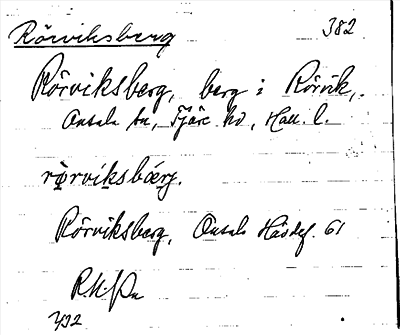 Rörviksberg 382
Rörviksberg, berg i Rörvik,
Onsala sn, Fjäre hd, Hall. l.
rörviksbærj.
Rörviksberg, Onsala Häsdef. 61
R.H. Pn
1/32